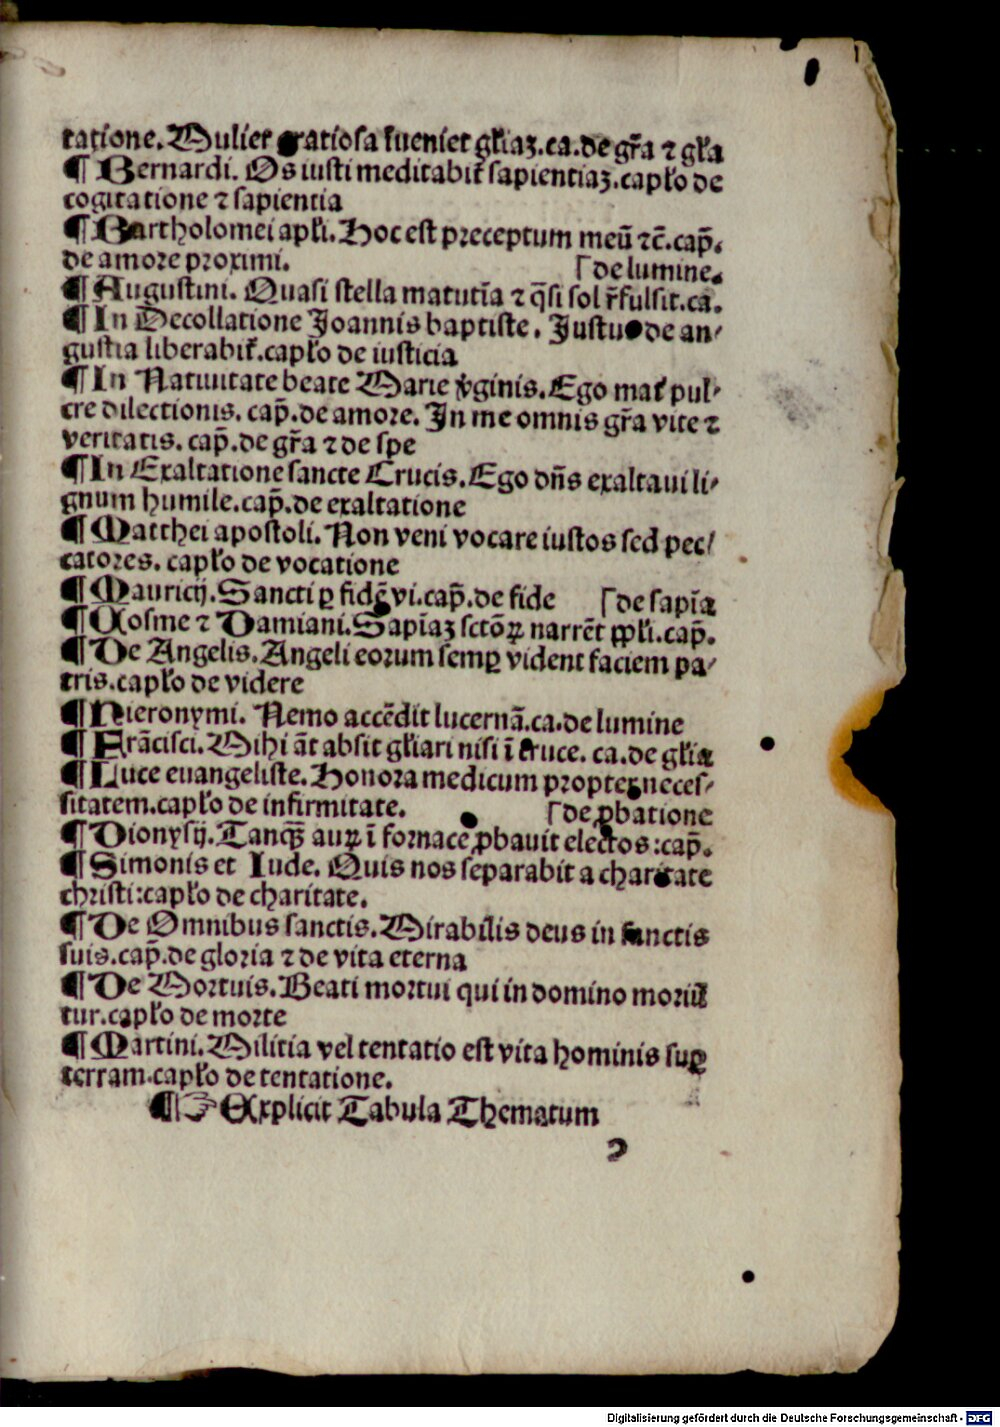 tatione. Mulier gratiosa īueniet gl'iaꝫ.ca.de gr̄a ⁊ gl'a
¶ Bernardi. Os iusti meditabit̄ sapientiaꝫ.capl'o de
cogitatione ⁊ sapientia
¶ Bartholomei apl'i. Hoc est preceptum meū ⁊c̄.cap̄.
de amore proximi. ⌈de lumine.
¶ Augustini. Quasi stella matutīa ⁊ q̄si sol r̄fulsit.ca.
¶ In Decollatione Joannis baptiste. Justus de an⸗
gustia liberabit̄.capl'o de iusticia
¶ In Natiuitate beate Marie v̄ginis. Ego mat̄ pul⸗
cre dilectionis. cap̄.de amore. In me omnis gr̄a vite ⁊
veritatis. cap̄.de gr̄a ⁊ de spe
¶ In Exaltatione sancte Crucis. Ego dn̄s exaltaui li⸗
gnum humile.cap̄.de exaltatione
¶ Matthei apostoli. Non veni vocare iustos sed pec⸗
catores. capl'o de vocatione
¶ Mauricij. Sancti ꝑ fidē vi.cap̄.de fide ⌈de sapīa
¶ Cosme ⁊ Damiani. Sapīaꝫ sctōꝝ narrēt ppl'i.cap̄.
¶ De Angelis. Angeli eorum semꝑ vident faciem pa⸗
tris.capl'o de videre
¶ Hieronymi. Nemo accēdit lucernā.ca.de lumine
¶ Frācisci. Mihi āt absit gl'iari nisi ī cruce. ca.de gl'ia
¶ Luce euangeliste. Honora medicum propter neces⸗
sitatem.capl'o de infirmitate. ⌈de ꝓbatione
¶ Dionysij. Tanqꝫ auꝝ ī fornace ꝓbauit electos:cap̄.
¶ Simonis et Iude. Quis nos separabit a charitate
christi:capl'o de charitate.
¶ De Omnibus sanctis. Mirabilis deus in sanctis
suis.cap̄.de gloria ⁊ de vita eterna
¶ De Mortuis. Beati mortui qui in domino moriū
tur.capl'o de morte
¶ Martini. Militia vel tentatio est vita hominis suꝑ
terram.capl'o de tentatione.
¶ ☞ Explicit Tabula Thematum
Digitalisierung gefördert durch die Deutsche Forschungsgemeinschaft - DFG